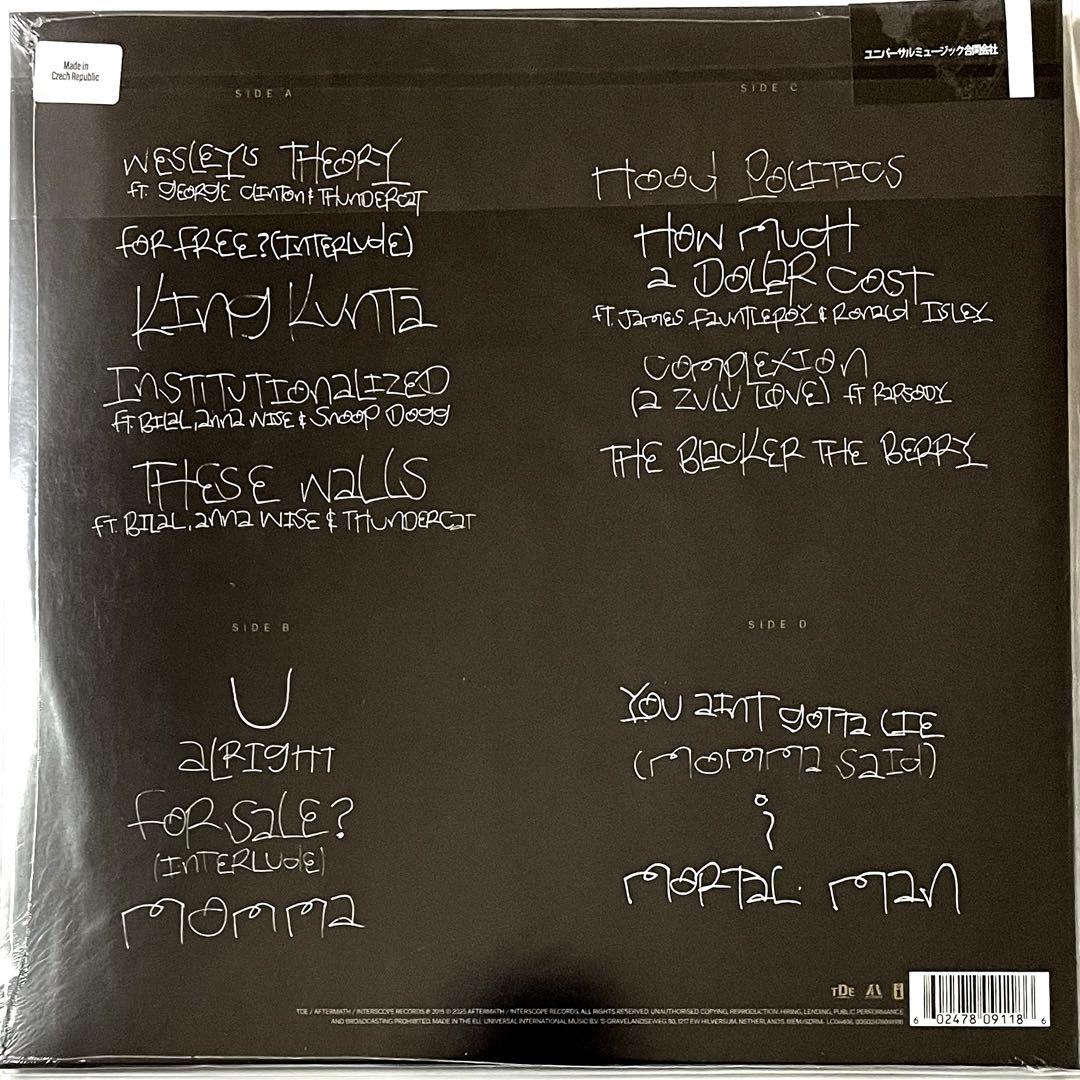 Made in
Czech Republic
ユニバーサル ミュージック合同会社
SIDE A
WESLEY'S THEORY
ft. GEORGE CLINTON & THUNDERCAT
FOR FREE? (INTERLUDE)
KING KUNTA
INSTITUTIONALIZED
ft. BILAL, ANNA WISE & SNOOP DOGG
THESE WALLS
ft. BILAL, ANNA WISE & THUNDERCAT
SIDE B
U
ALRIGHT
FOR SALE?
(INTERLUDE)
MOMMA
SIDE C
HOOD POLITICS
HOW MUCH
A DOLLAR COST
ft. JAMES FAUNTLEROY & RONALD ISLEY
COMPLEXION
(A ZULU LOVE) ft RAPSODY
THE BLACKER THE BERRY
SIDE D
YOU AINT GOTTA LIE
(MOMMA SAID)
i
MORTAL MAN
TDE
TDE / AFTERMATH / INTERSCOPE RECORDS ℗ 2015 © 2025 AFTERMATH / INTERSCOPE RECORDS. ALL RIGHTS RESERVED. UNAUTHORISED COPYING, REPRODUCTION, HIRING, LENDING, PUBLIC PERFORMANCE
AND BROADCASTING PROHIBITED. MADE IN THE EU. UNIVERSAL INTERNATIONAL MUSIC B.V. 'S-GRAVELANDSEWEG 80, 1217 EW HILVERSUM, NETHERLANDS. BIEM/SDRM.
6 02478 09118 6